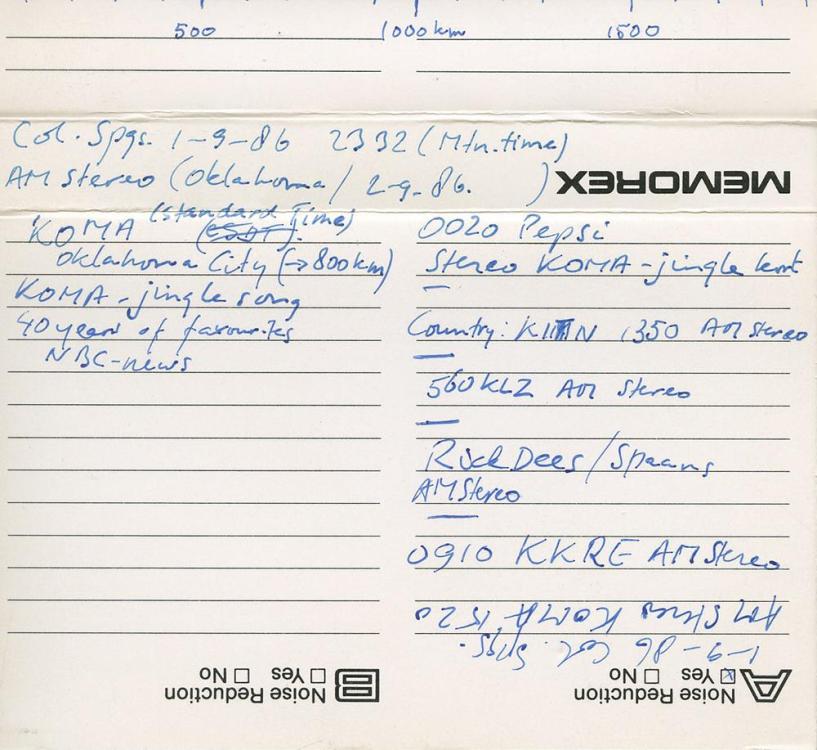 500 1000 km 1500
Col. Spgs. 1-9-86 2332 (Mtn. time)
AM Stereo (Oklahoma / 2-9-86. )
MEMOREX
KOMA (Standard Time)
Oklahoma City (→800km)
KOMA-jingle song
40 years of favourites
NBC-news
0020 Pepsi
Stereo KOMA-jingle kort
Country: 1350 AM Stereo
560 KLZ AM Stereo
Rick Dees / Spaans
AM Stereo
0910 KKRE AM Stereo
AM Stereo KOMA 1520
1-9-86 Col. Spgs.
A Noise Reduction
Yes No
B Noise Reduction
Yes No